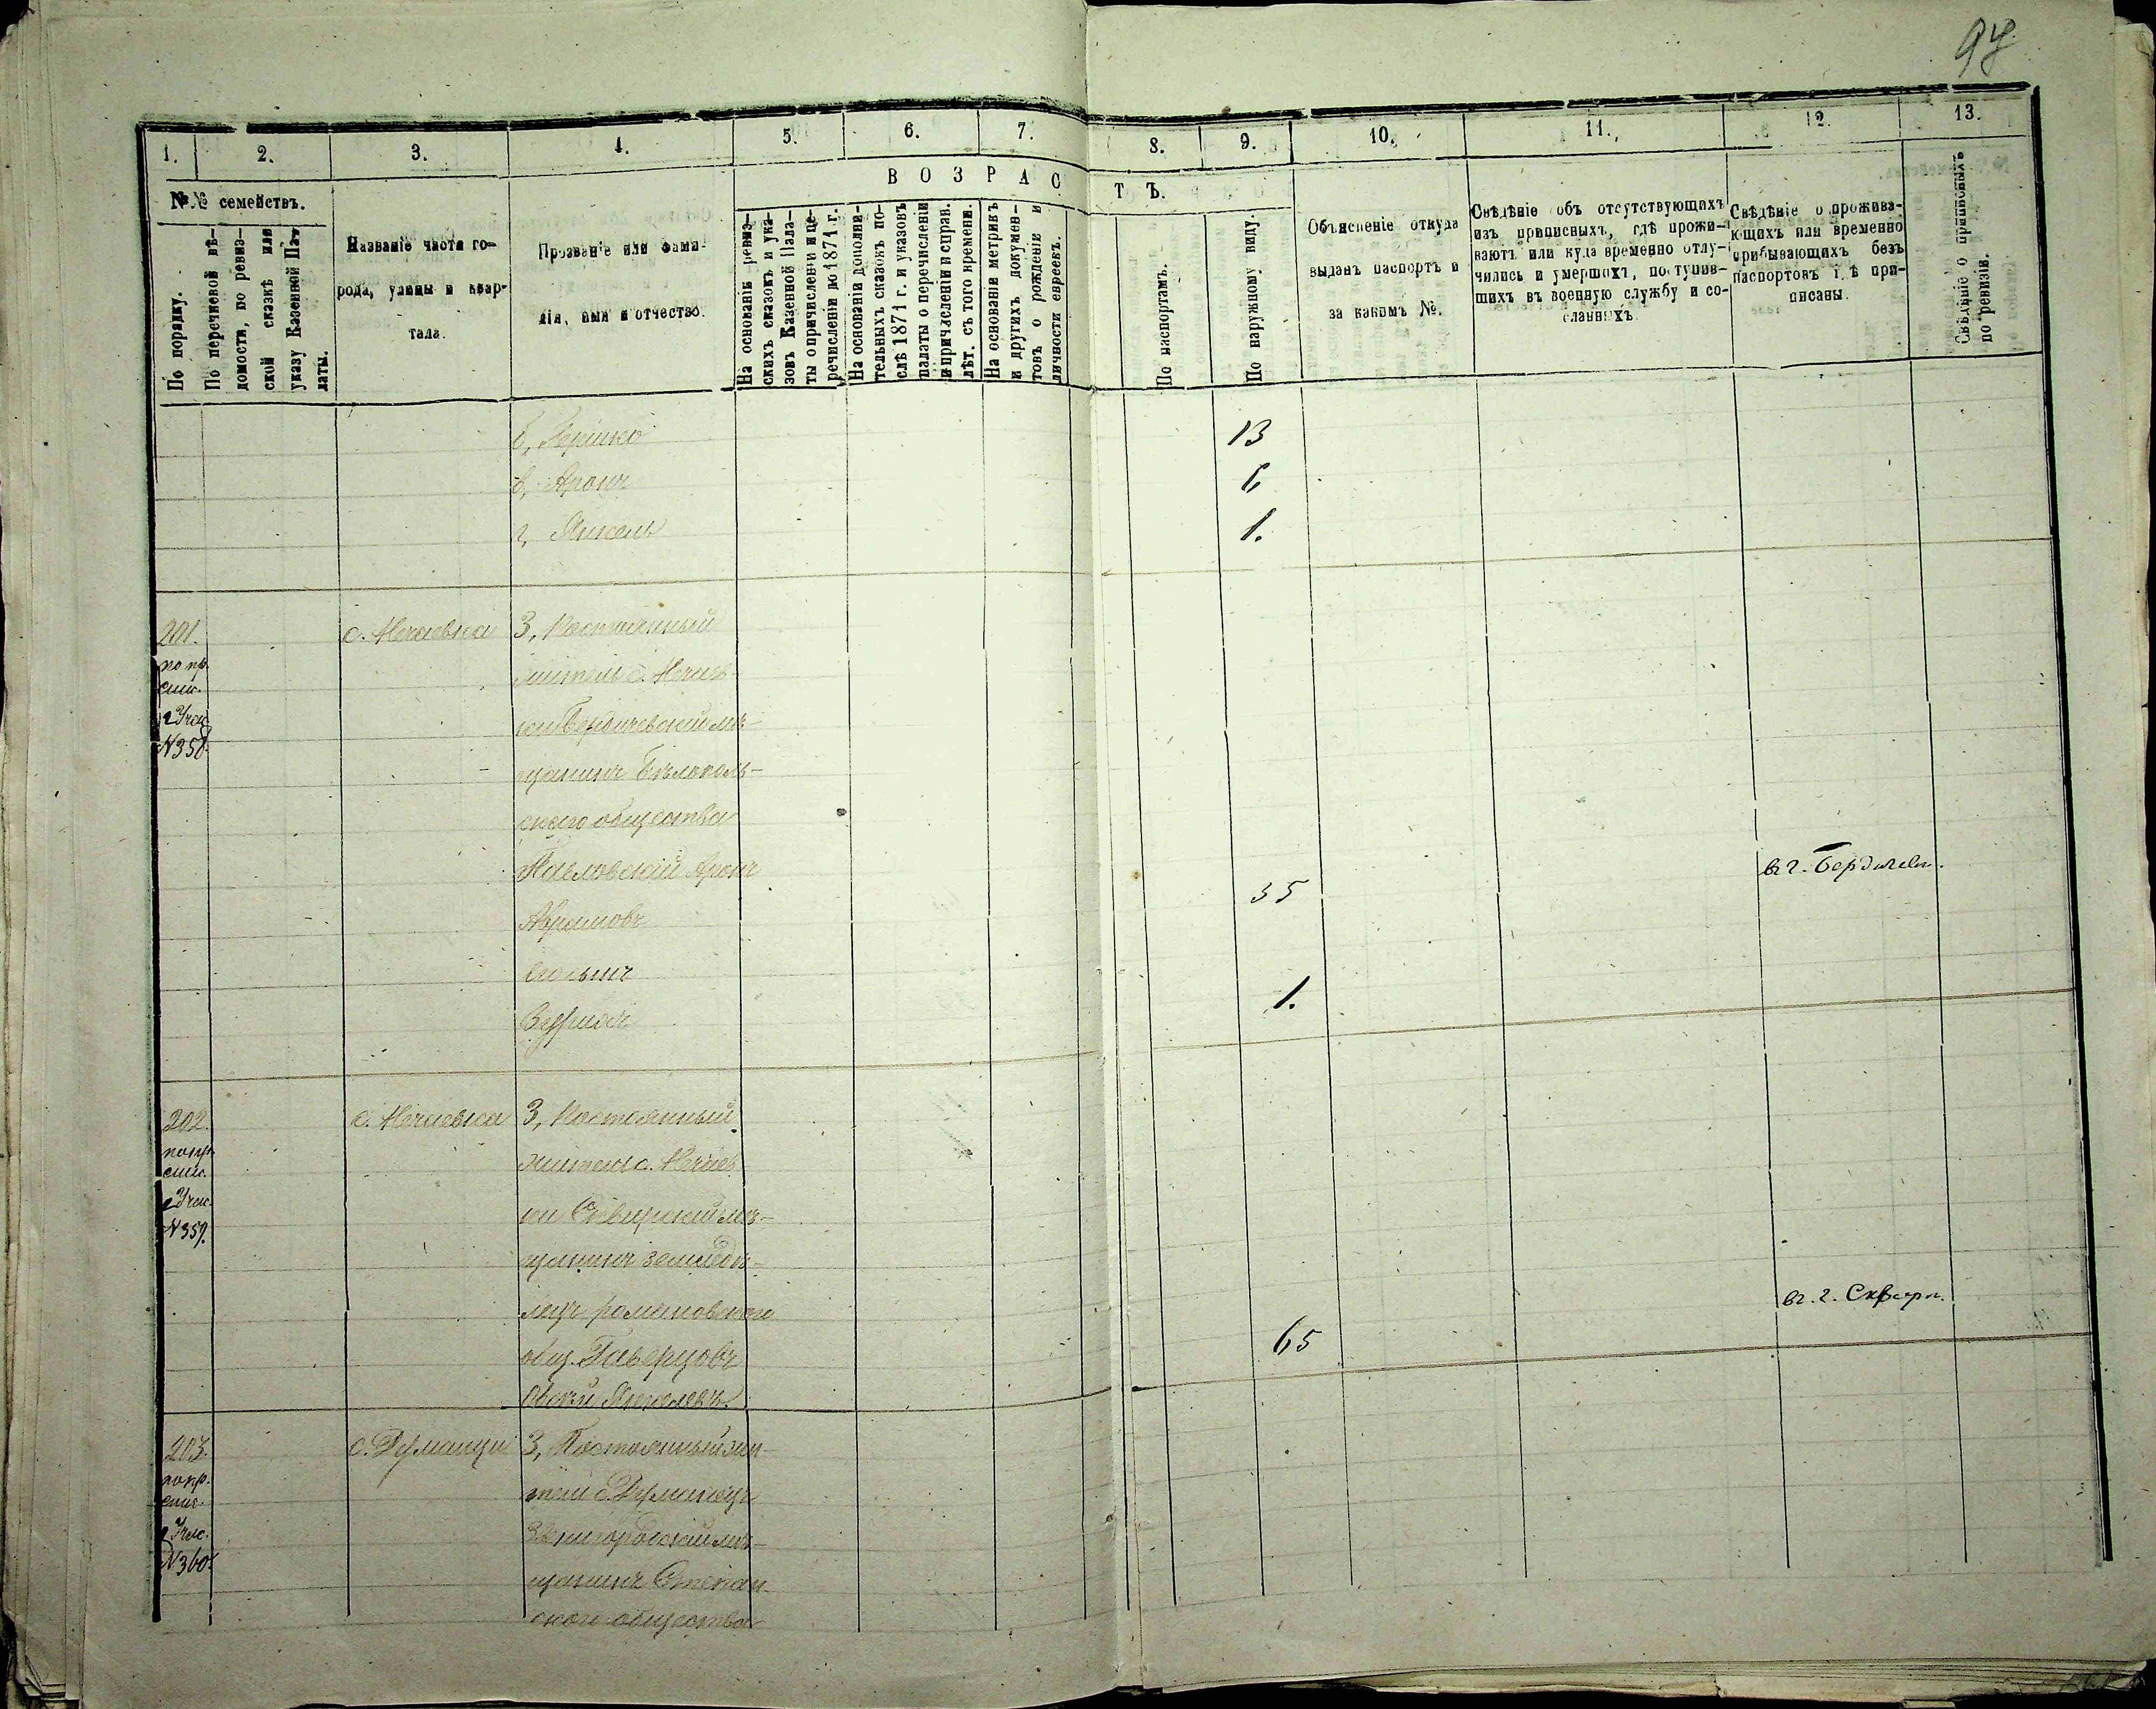 97
1. 2. 3. 4. 5. 6. 7. 8. 9. 10. 11. 12. 13.
№№ семействъ.
По порядку.
По перечневой вѣ-
домости, по ревиз-
ской сказкѣ или
указу Казенной Па-
латы.
Названіе части го-
рода, улицы и квар-
тала.
Прозваніе или фами-
лія, имя и отчество.
ВОЗРАСТЪ.
На основаніи ревиз-
скихъ сказокъ и ука-
зовъ Казенной Пала-
ты о причисленіи и пе-
речисленіи до 1874 г.
На основаніи дополни-
тельныхъ сказокъ по-
слѣ 1874 г. и указовъ
палаты о перечисленіи
и причисленіи и справ.
лѣт. съ того времени.
На основаніи метрикъ
и другихъ докумен-
товъ о рожденіи и
личности евреевъ.
По паспортамъ.
По наружному виду.
Объясненіе откуда
выданъ паспортъ и
за какимъ №.
Свѣдѣніе объ отсутствующихъ
изъ приписныхъ, гдѣ прожи-
ваютъ или куда временно отлу-
чились и умершихъ, поступив-
шихъ въ военную службу и со-
сланныхъ
Свѣдѣніе о прожива-
ющихъ или временно
прибывающихъ безъ
паспортовъ гдѣ при-
писаны.
Свѣдѣніе о приписныхъ
по ревизіи.
б, Гершко 13
в, Аронъ 6
г, Янкель 1.
201.
по пр.
спис.
2 Учас
№358.
с. Нечаевка
3, Постоянный
житель с. Нечаев-
ки Бердичевскій мѣ-
щанинъ Бѣлополь-
скаго общества
Павловскій Аронъ 55 въ г. Бердичевѣ.
Абрамовъ
Сынъ
1.
202.
по пр.
спис.
2 Учас.
№359.
с. Нечаевка
3, Постоянный
житель с. Нечаев
ки Сквирскій мѣ-
щанинъ земледѣ-
лецъ романовского
общ. 65 въ. г. Сквирѣ.
203.
по пр.
спис.
2 Учас.
№360.
с. Дерманци
3, Постоянный жи-
тель с. Дерманецъ
Звенигородскій мѣ-
щанинъ
ского общества